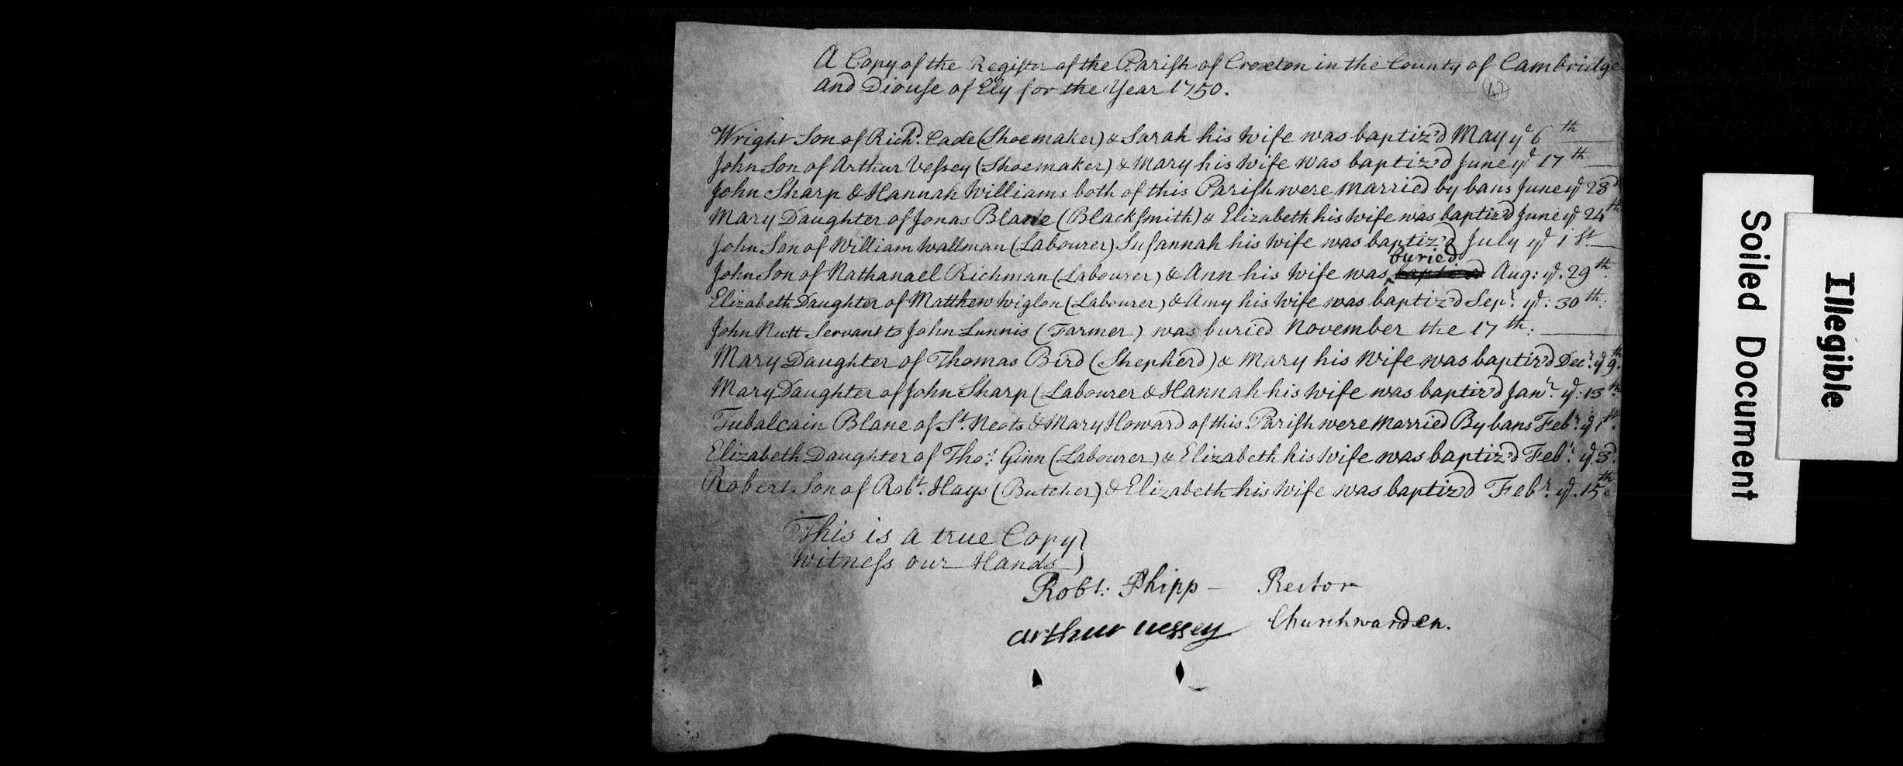 A Copy of the Register of the Parish of Croxton in the County of Cambridge
and Diouse of Ely for the Year 1750.
Wright Son of Rich.d Cade (Shoemaker) & Sarah his Wife was baptiz'd May ye 6th
John Son of Arthur Vessey (Shoemaker) & Mary his Wife was baptiz'd June ye 17th
John Sharp & Hannah Williams both of this Parish were Married by bans June ye 23d
Mary Daughter of Jonas Blane (Blacksmith) & Elizabeth his Wife was baptiz'd June ye 24th
John Son of William Wallman (Labourer) Susannah his Wife was baptiz'd July ye 1st
John Son of Nathanael Richman (Labourer) & Ann his Wife was buried Aug: ye. 29th
Elizabeth Daughter of Matthew (Labourer) & Amy his Wife was baptiz'd Sepr. ye: 30th:
John Nutt Servant to John Lunnis (Farmer) was buried November the 17th:
Mary Daughter of Thomas Bird (Shepherd) & Mary his Wife was baptiz'd Decr. ye 9th
Mary Daughter of John Sharp (Labourer & Hannah his Wife was baptiz'd Janr. ye: 13th
Tubalcain Blane of St. Neots & Mary Howard of this Parish were Married By bans Febr. ye 1st.
Elizabeth Daughter of Tho.s Ginn (Labourer) & Elizabeth his Wife was baptiz'd Febr. ye 3d.
Robert Son of Robt. Hays (Butcher) & Elizabeth his Wife was baptiz'd Febr. ye. 15th
This is a true Copy
Witness our Hands
Robt: Phipp — Rector
Arthur Vessey Churchwarden.
Soiled Document
Illegible